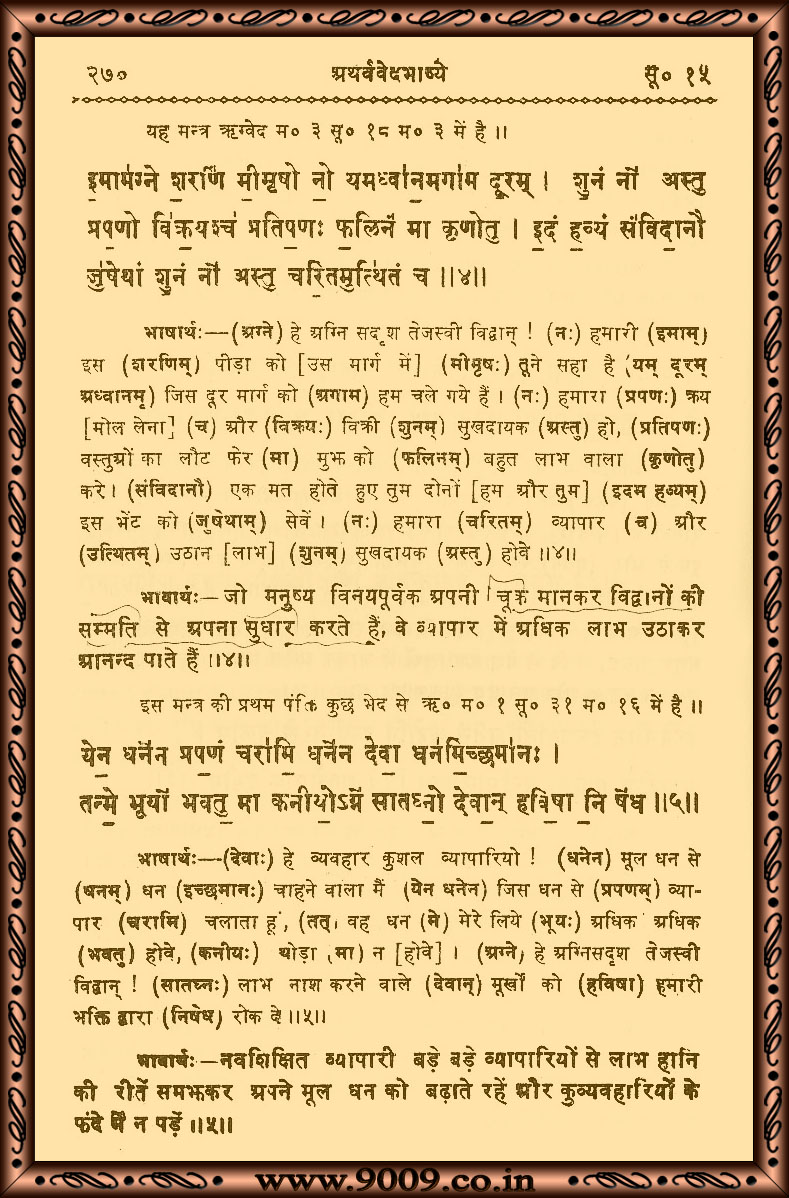 २७० अथर्ववेदभाष्ये सू० १५
यह मन्त्र ऋग्वेद म० ३ सू० १८ म० ३ में है ।।
इ॒माम॑ग्ने श॒रणिं॑ मीमृषो नो॒ यमध्वा॑न॒मगा॑म दू॒रम् । शु॒नं नो॑ अस्तु
प्रप॒णो वि॑क्र॒यश्च॑ प्रतिप॒णः फ॒लिनं॑ मा कृणोतु । इ॒दं ह॒व्यं सं॑विदा॒नौ
जु॑षेथां शु॒नं नो॑ अस्तु चरि॒तमुत्थि॑तं च ।।४।।
भाषार्थः—(अग्ने) हे अग्नि सदृश तेजस्वी विद्वान् ! (नः) हमारी (इमाम्)
इस (शरणिम्) पीड़ा को [उस मार्ग में] (मीमृषः) तूने सहा है (यम् दूरम्
अध्वानम्) जिस दूर मार्ग को (अगाम) हम चले गये हैं । (नः) हमारा (प्रपणः) क्रय
[मोल लेना] (च) और (विक्रयः) विक्री (शुनम्) सुखदायक (अस्तु) हो, (प्रतिपणः)
वस्तुओं का लौट फेर (मा) मुझ को (फलिनम्) बहुत लाभ वाला (कृणोतु)
करे । (संविदानौ) एक मत होते हुए तुम दोनों [हम और तुम] (इदम हव्यम्)
इस भेंट को (जुषेथाम्) सेवें । (नः) हमारा (चरितम्) व्यापार (च) और
(उत्थितम्) उठान [लाभ] (शुनम्) सुखदायक (अस्तु) होवे ।।४।।
भावार्थः—जो मनुष्य विनयपूर्वक अपनी चूक मानकर विद्वानों की
सम्मति से अपना सुधार करते हैं, वे व्यापार में अधिक लाभ उठाकर
आनन्द पाते हैं ।।४।।
इस मन्त्र की प्रथम पंक्ति कुछ भेद से ऋ० म० १ सू० ३१ म० १६ में है ।।
येन॒ धने॑न प्रप॒णं चरा॑मि॒ धने॑न देवा॒ धन॑मि॒च्छमा॑नः ।
तन्मे॒ भूयो॑ भवतु॒ मा कनी॒योऽग्ने॑ सात॒घ्नो दे॒वान् ह॒विषा॒ नि षे॑ध ।।५।।
भाषार्थः—(देवाः) हे व्यवहार कुशल व्यापारियो ! (धनेन) मूल धन से
(धनम्) धन (इच्छमानः) चाहने वाला मैं (येन धनेन) जिस धन से (प्रपणम्) व्या-
पार (चरामि) चलाता हूं, (तत्) वह धन (मे) मेरे लिये (भूयः) अधिक अधिक
(भवतु) होवे, (कनीयः) थोड़ा (मा) न [होवे] । (अग्ने) हे अग्निसदृश तेजस्वी
विद्वान् ! (सातघ्नः) लाभ नाश करने वाले (देवान्) मूर्खों को (हविषा) हमारी
भक्ति द्वारा (निषेध) रोक दे ।।५।।
भावार्थः—नवशिक्षित व्यापारी बड़े बड़े व्यापारियों से लाभ हानि
की रीतें समझकर अपने मूल धन को बढ़ाते रहें और कुव्यवहारियों के
फंदे में न पड़ें ।।५।।
www.9009.co.in